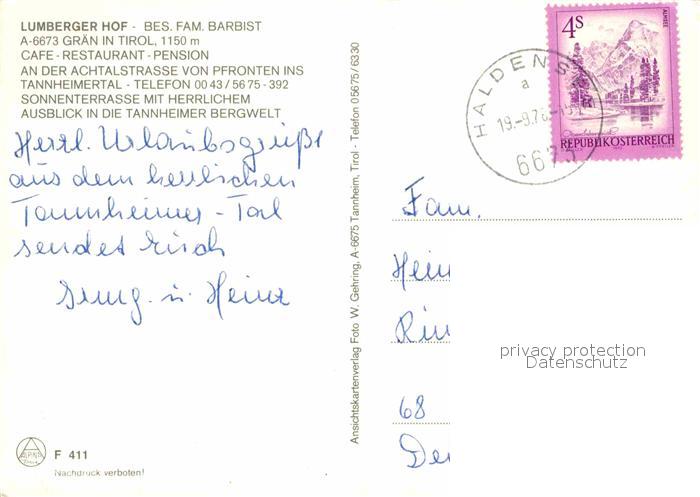 LUMBERGER HOF - BES. FAM. BARBIST
A-6673 GRÄN IN TIROL, 1150 m
CAFE - RESTAURANT - PENSION
AN DER ACHTALSTRASSE VON PFRONTEN INS
TANNHEIMERTAL - TELEFON 00 43 / 56 75 - 392
SONNENTERRASSE MIT HERRLICHEM
AUSBLICK IN DIE TANNHEIMER BERGWELT
Herzl. Urlaubsgrüße
aus dem herrlichen
Tannheimer - Tal
sendet
u. Heinz
F 411
Nachdruck verboten!
Ansichtskartenverlag Foto W. Gehring, A-6675 Tannheim, Tirol - Telefon 05675/6330
4S
ALMSEE
REPUBLIK ÖSTERREICH
HALDENS
a
19.-9.76
6673
Fam.
Hein
Rin
68
Der
privacy protection
Datenschutz